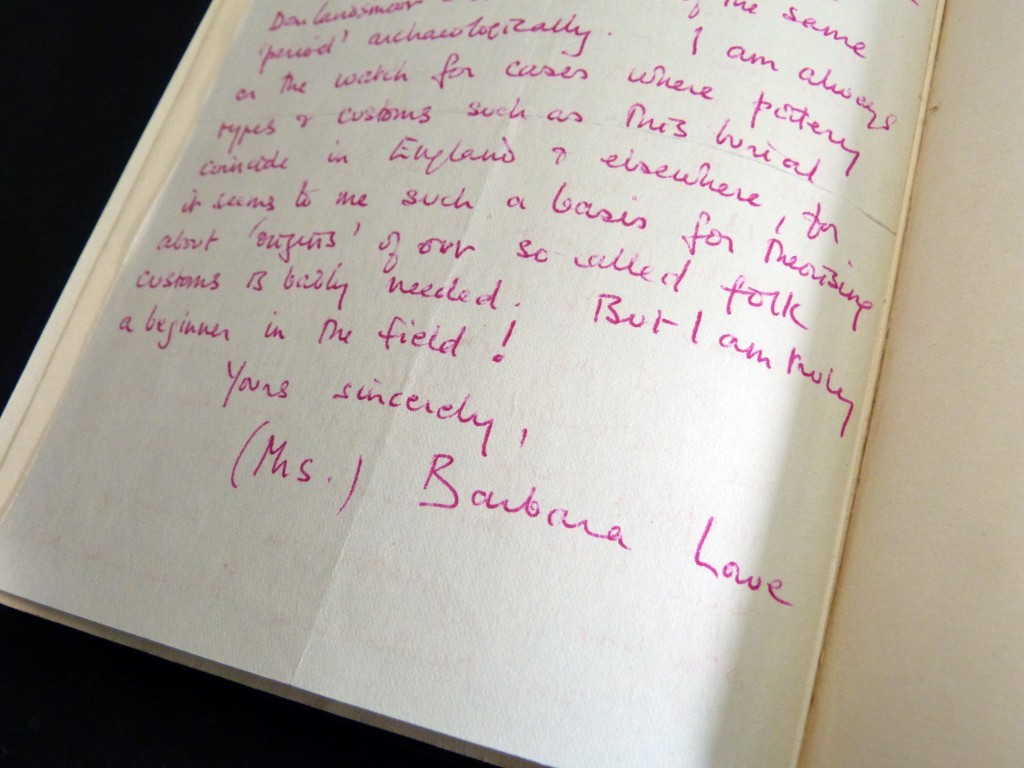 of the same
'period' archaeologically. I am always
on the watch for cases where pottery
types & customs such as this burial
coincide in England & elsewhere, for
it seems to me such a basis for theorising
about 'origins' of our so called folk
customs is badly needed. But I am truly
a beginner in the field!
Yours sincerely,
(Mrs.) Barbara Lowe